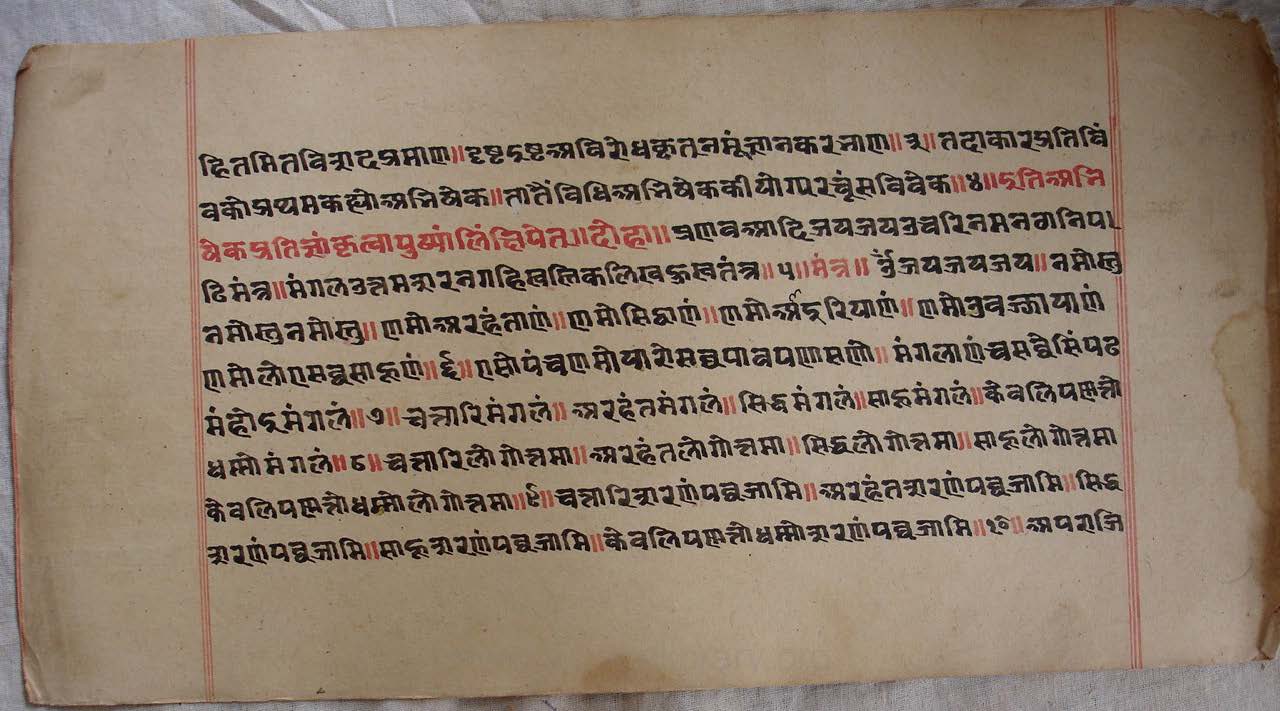 हितमितविशदप्रमाण॥ दृष्टइष्टअविरोधकृतूनमूंज्ञानकरजाण॥३॥ तदाकारप्रतिबिं
बकोप्रथमकह्योअभिषेक॥ तातैंविधिअभिषेककीयोग्परचूंसविवेक॥४॥ इतिअभि
षेकप्रतिज्ञांकृत्वापुष्पांलिंक्षिपेत्॥ दोहा॥ प्रणवआदिजयजयउचरिनमनठानिपा
ढिमंत्र॥ मंगलउत्तमशरनगहिखलिकलिखङुखतंत्र॥५॥ मंत्र॥ र्जयजयजय॥ नमोस्तु
नमोस्तुनमोस्तु॥ णमोअरहंताणं॥ णमोसिद्धाणं॥ णमोआइरियाणं॥ णमोउवज्झायाणं
णमोलोएसव्वसाहूणं॥६॥ एसोपंचणमोयारोसव्वपावपणासणो॥ मंगलाणंचसव्वेसिंपढ
मंहोइमंगलं॥७॥ चत्तारिमंगलं॥ अरहंतमंगलं॥ सिद्धमंगलं॥ साहूमंगलं॥ केवलिपण्णत्तो
धम्मोमंगलं॥८॥ चत्तारिलोगोत्तमा॥ अरहंतलोगोत्तमा॥ सिद्धलोगोत्तमा॥ साहूलोगोत्तमा
केवलिपण्णत्तोधम्मोलोगोत्तमा॥९॥ चत्तारिशरणंपव्वजामि॥ अरहंतशरणंपव्वजामि॥ सिद्ध
शरणंपव्वजामि॥ साहूशरणंपव्वजामि॥ केवलिपण्णत्तोधम्मोशरणंपव्वजामि॥१०॥ अपराजि